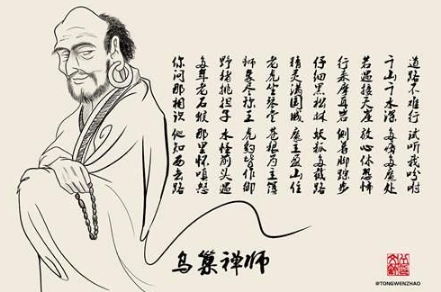 道路不难行 试听我吩咐
千山千水深 多瘴多魔处
若遇接天崖 放心休恐怖
行来摩耳岩 侧着脚踪步
仔细黑松林 妖狐多截路
精灵满国城 魔主盈山住
老虎坐琴堂 苍狼为主簿
狮象尽称王 虎豹皆作御
野猪挑担子 水怪前头遇
多年老石猴 那里怀嗔怒
你问那相识 他知西去路
乌巢禅师
@TONEWENZHAO